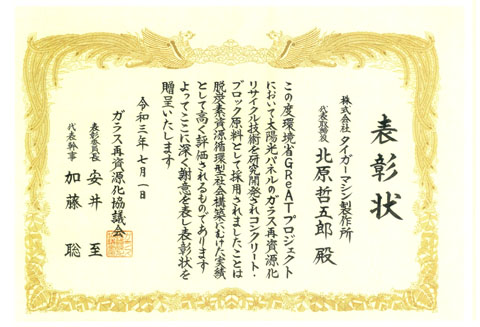 表彰状
株式会社 タイガーマシン製作所
代表取締役 北原哲五郎 殿
この度環境省GReATプロジェクト
において太陽光パネルのガラス再資源化
リサイクル技術を研究開発されコンクリート・
ブロック原料として採用されましたことは
脱炭素資源循環型社会構築にむけた実績
として高く評価されるものであります
よってここに深く謝意を表し表彰状を
贈呈いたします
令和三年七月一日
ガラス再資源化協議会
表彰委員長 安井 至
代表幹事 加藤 聡